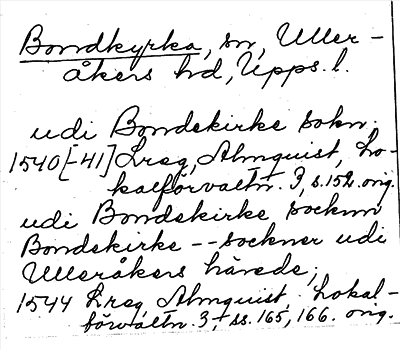 Bondkyrka, sn, Uller-
åkers hd, Upps. l.
udi Bondekirke sokn.
1540[-41] Lreg, Almquist, Lo-
kalförvaltn. 3, s. 152. orig.
udi Bondekirke socknn
Bondekirke -- sockner udi
Ulleråkers härede,
1544 Lreg, Almquist. Lokal-
förvaltn. 3, ss. 165, 166. orig.